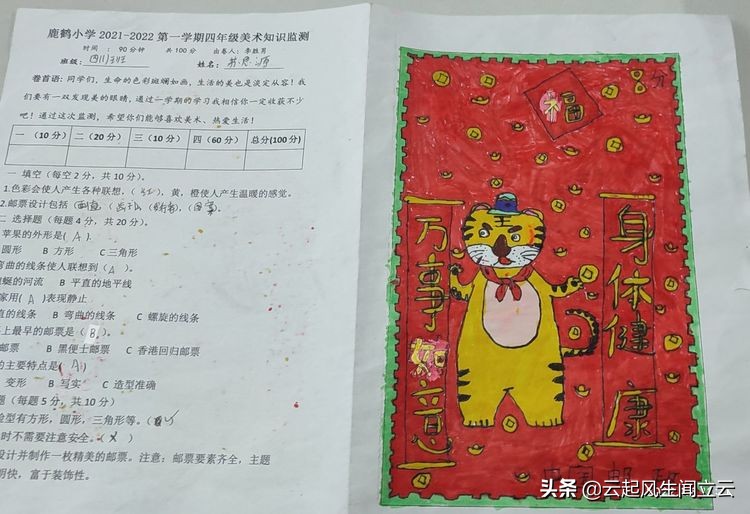 鹿鹤小学2021-2022第一学期四年级美术知识监测
时间：90分钟 共100分 出卷人：李胜男
班级： 姓名：
卷首语：同学们，生命的色彩斑斓如画，生活的美也是淡定从容！我
们要有一双发现美的眼睛，通过一学期的学习我相信你一定收获不少
吧！通过这次监测，希望你们能够喜欢美术、热爱生活！
一（10分） 二（20分） 三（10分） 四（60分） 总分(100分)
一 填空（每空2分，共10分）。
1.色彩会使人产生各种联想，（红），黄，橙使人产生温暖的感觉。
2.邮票设计包括（面值）（ ）（ ）（ ）。
二 选择题（每题4分，共20分）。
苹果的外形是（A）.
圆形 B 方形 C三角形
弯曲的线条使人联想到（A）。
蜿蜒的河流 B 平直的地平线
家用（A）表现静止
直的线条 B 弯曲的线条 C 螺旋的线条
上最早的邮票是（B）。
邮票 B 黑便士邮票 C 香港回归邮票
的主要特点是（A）
变形 B 写实 C 造型准确
题（每题5分，共10分）
脸型有方形，圆形，三角形等。（ ）
时不需要注意安全。（X）
设计并制作一枚精美的邮票。注意：邮票要素齐全，主题
明快，富于装饰性。
福
8分
王
万事如意
身体健康
中国邮政
头条 @云起风生闻立云